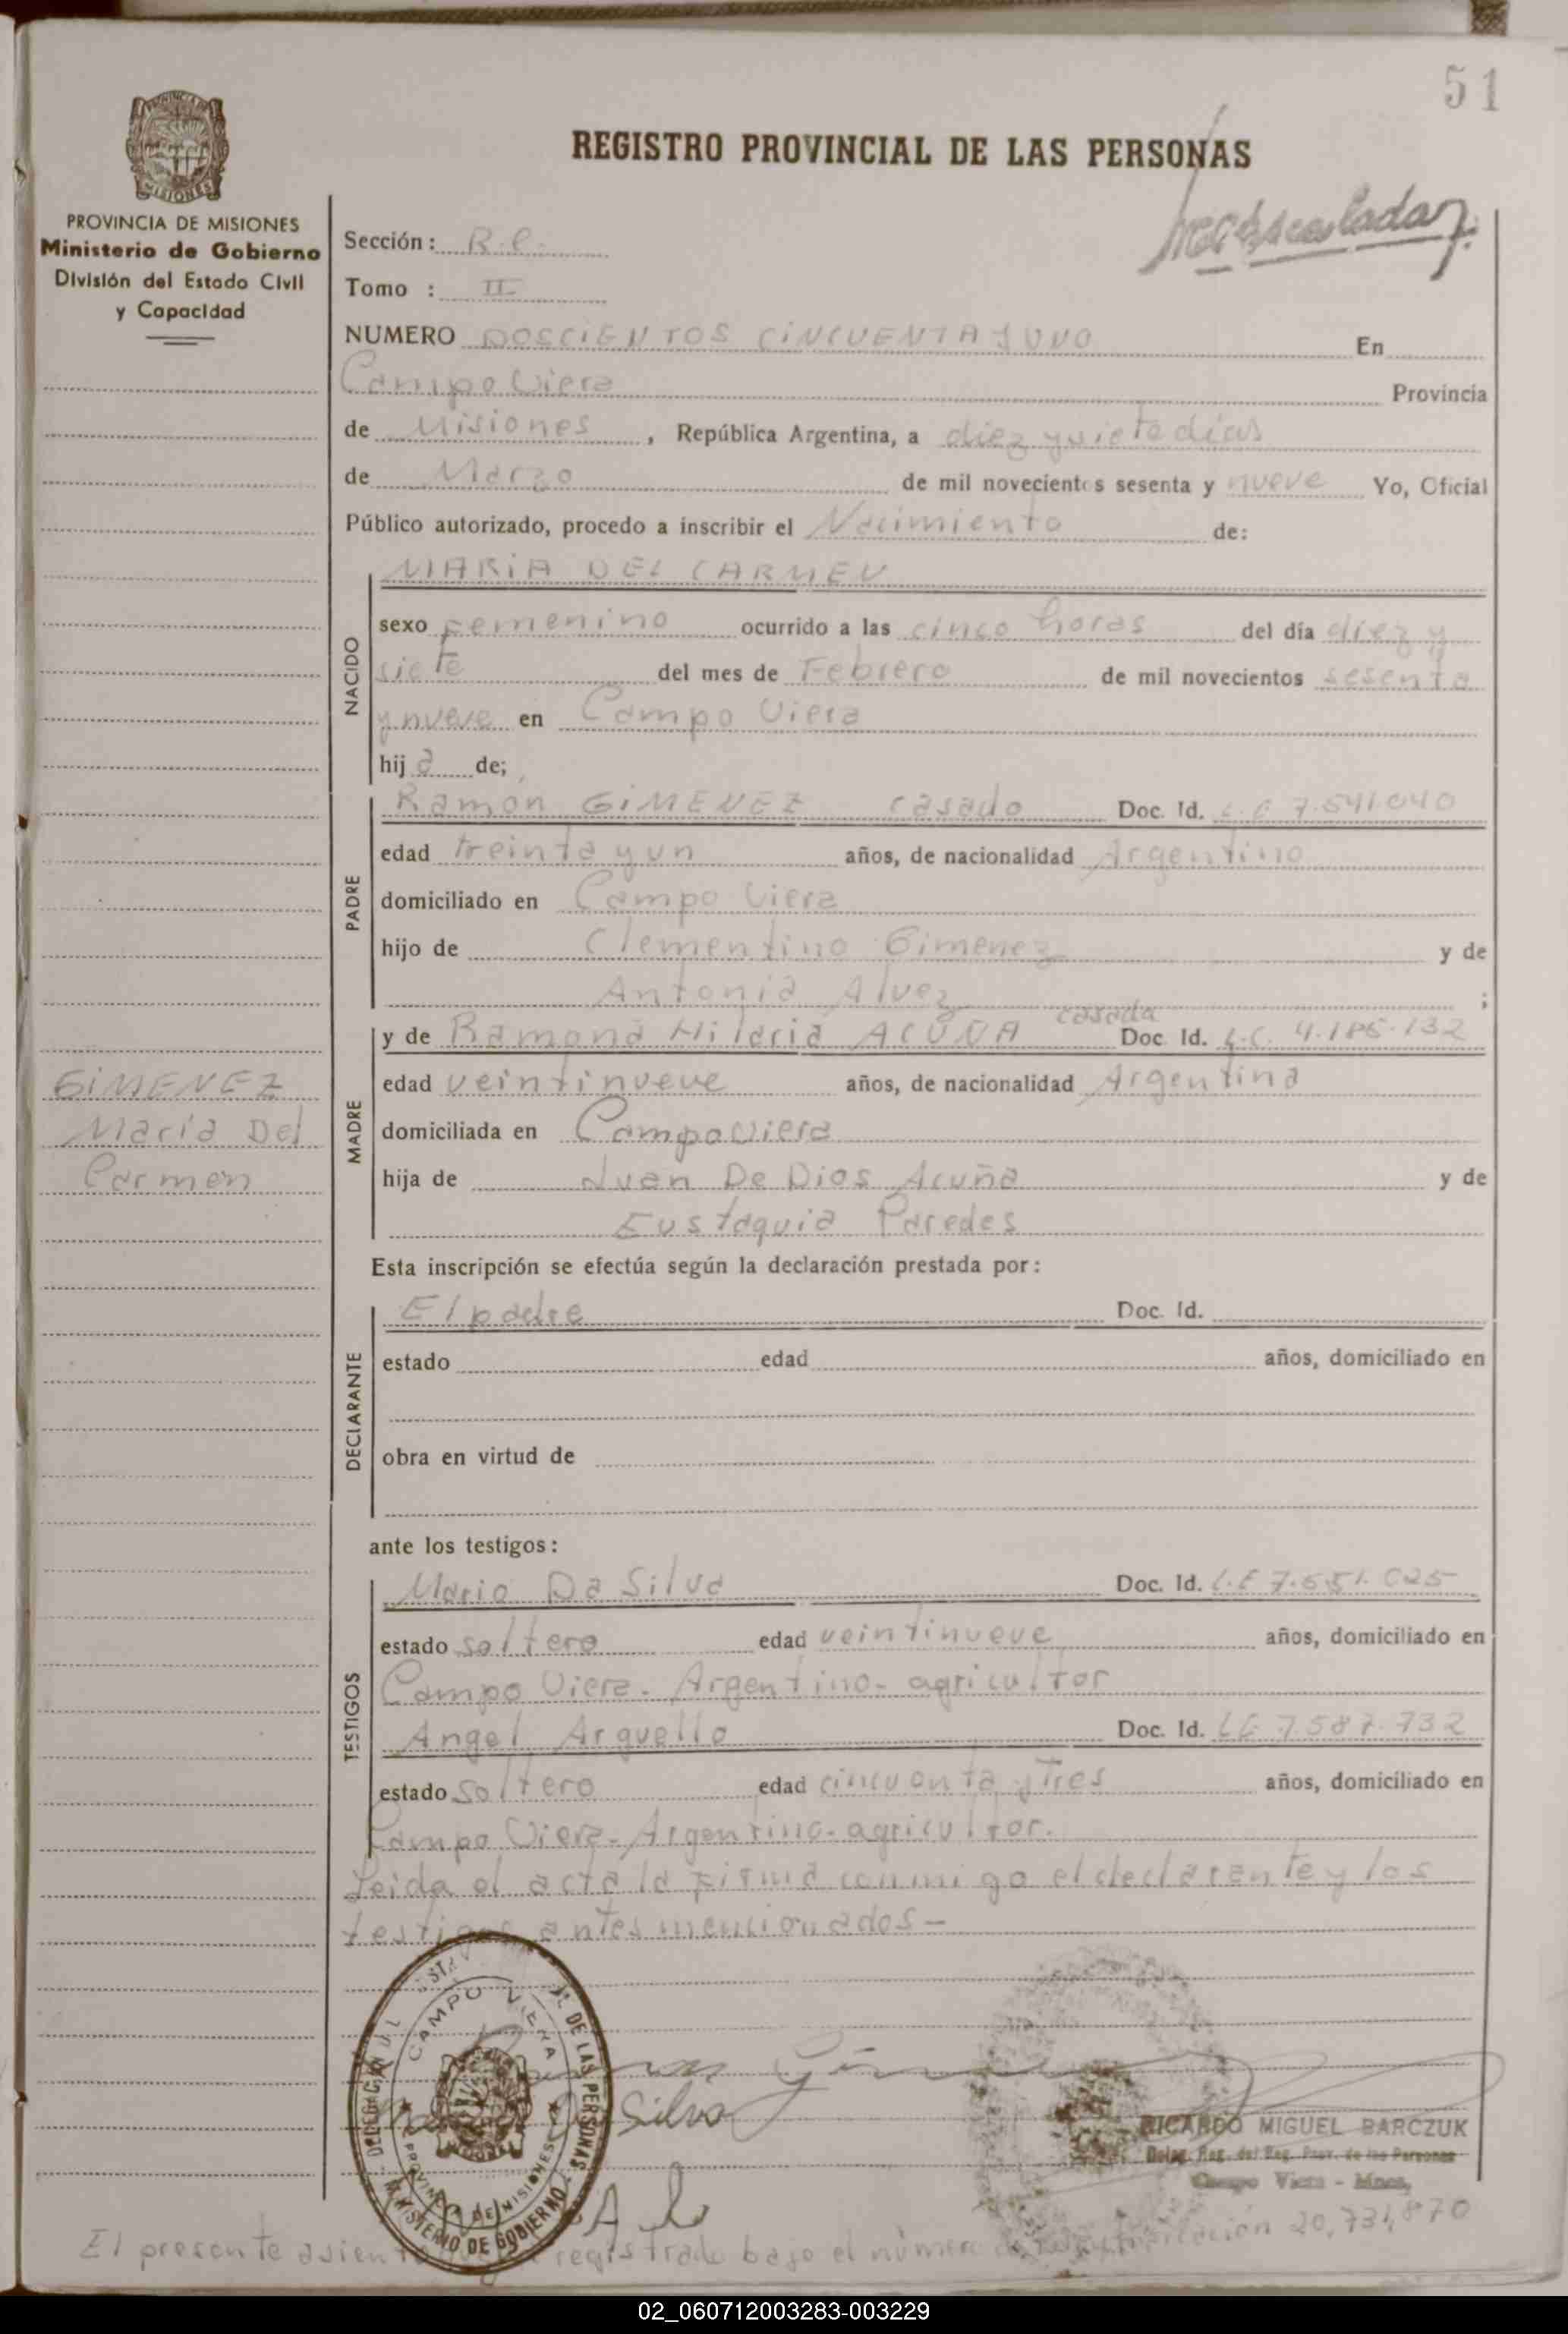 51
REGISTRO PROVINCIAL DE LAS PERSONAS
PROVINCIA DE MISIONES
Ministerio de Gobierno
División del Estado Civil
y Capacidad
Sección: R.C.
Tomo : II
NUMERO DOSCIENTOS CINCUENTA Y UNO En
Campo Viera Provincia
de Misiones, República Argentina, a diez y siete días
de Marzo de mil novecientos sesenta y nueve Yo, Oficial
Público autorizado, procedo a inscribir el Nacimiento de:
NACIDO
MARIA DEL CARMEN
sexo femenino ocurrido a las cinco horas del día diez y
siete del mes de Febrero de mil novecientos sesenta
y nueve en Campo Viera
hija de;
PADRE
Ramon GIMENEZ casado Doc. Id. L.E 7.541.040
edad treinta y un años, de nacionalidad Argentino
domiciliado en Campo Viera
hijo de Clementino Gimenez y de
Antonia Alvez ;
MADRE
casada
y de Ramona Hilaria ACUÑA Doc. Id. L.C. 4.186.132
edad veintinueve años, de nacionalidad Argentina
domiciliada en Campo Viera
hija de Juan De Dios Acuña y de
Eustaquia Paredes
GIMENEZ
Maria Del
Carmen
Esta inscripción se efectúa según la declaración prestada por:
DECLARANTE
El padre Doc. Id.
estado edad años, domiciliado en
obra en virtud de
ante los testigos:
TESTIGOS
Mario Da Silva Doc. Id. L.E 7.651.025
estado soltero edad veintinueve años, domiciliado en
Campo Viera- Argentino- agricultor
Angel Arguello Doc. Id. LE 7.587.732
estado soltero edad cincuenta y tres años, domiciliado en
Campo Viera- Argentino- agricultor.
Leida el acta la firma conmigo el declarante y los
testigos antes mencionados-
DE LAS PERSONAS
CAMPO VIERA
PROVINCIA DE MISIONES
MINISTERIO DE GOBIERNO
Silva
RICARDO MIGUEL BARCZUK
Deleg. Reg. del Reg. Prov. de las Personas
Campo Viera - Mnes.
El presente asiento registrado bajo el número de 20,731,870
02_060712003283-003229